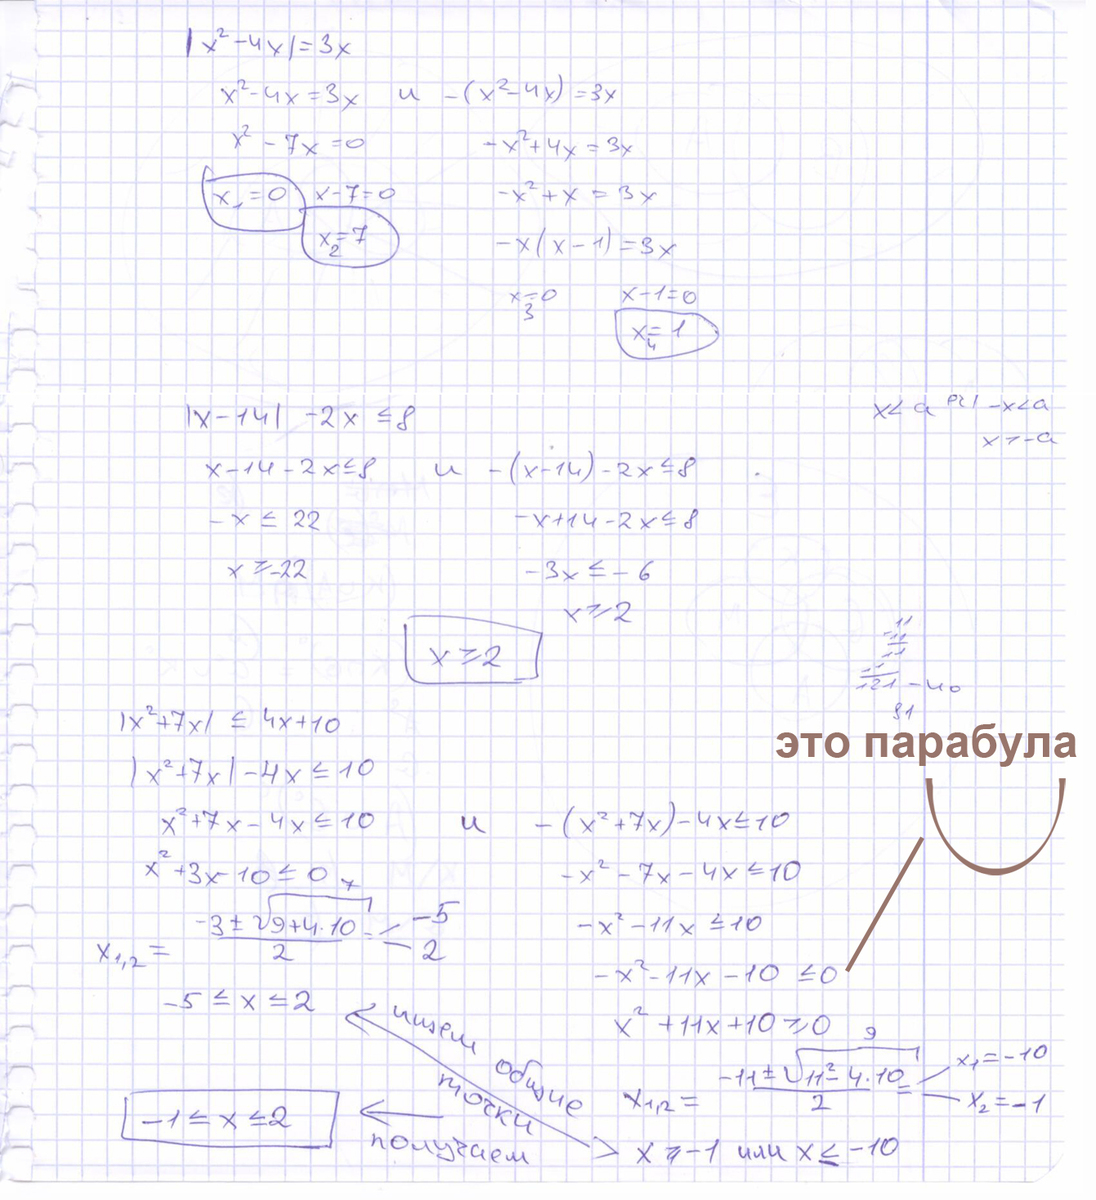 |x²-4x|=3x
x²-4x=3x и -(x²-4x)=3x
x²-7x=0 -x²+4x=3x
x₁=0 x-7=0 -x²+x=3x
x₂=7 -x(x-1)=3x
x₃=0 x-1=0
x₄=1
|x-14|-2x≤8
x<a -x<a
x>-a
x-14-2x≤8 и -(x-14)-2x≤8
-x≤22 -x+14-2x≤8
x≥-22 -3x≤-6
x≥2
x≥2
11
11
11
11
121-40
81
|x²+7x|≤4x+10
это парабула
|x²+7x|-4x≤10
x²+7x-4x≤10 и -(x²+7x)-4x≤10
x²+3x-10≤0 -x²-7x-4x≤10
7
x₁,₂= -3±√9+4·10 / 2 = -5 2
-x²-11x≤10
-x²-11x-10≤0
-5≤x≤2 x²+11x+10≥0
9
x₁,₂= -11±√11²-4·10 / 2 = x₁=-10 x₂=-1
ищем общие
точки
-1≤x≤2 получаем x≥-1 или x≤-10